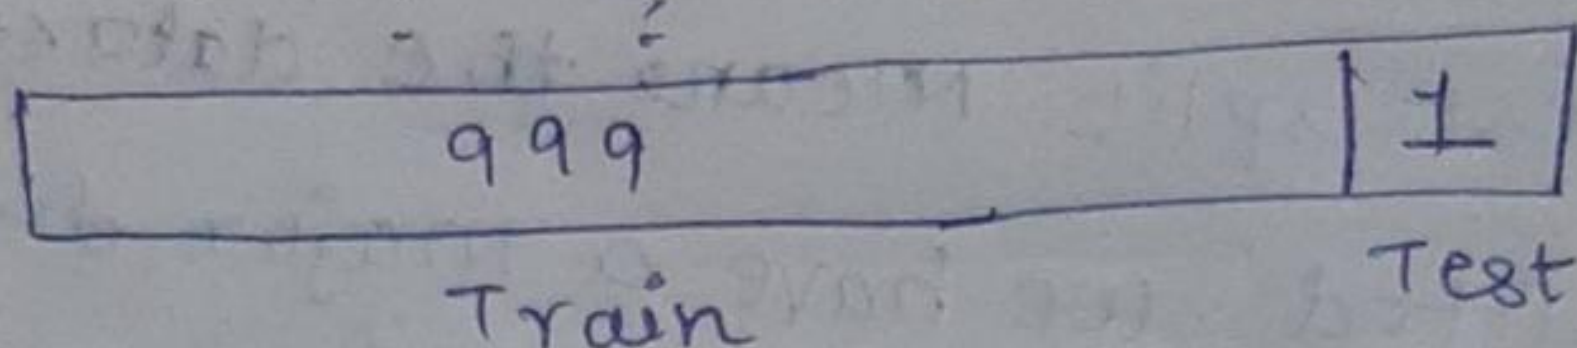 999 1
Train Test